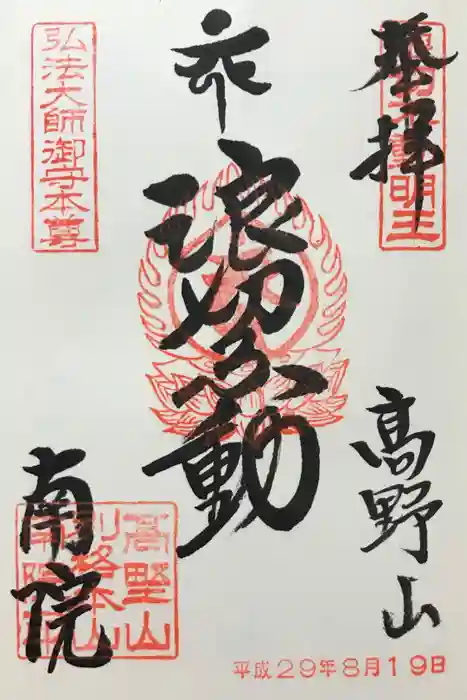 奉拝
不動明王
高野山
浪切不動
弘法大師御守本尊
南院
高野山
別格本山
南院印
平成29年8月19日